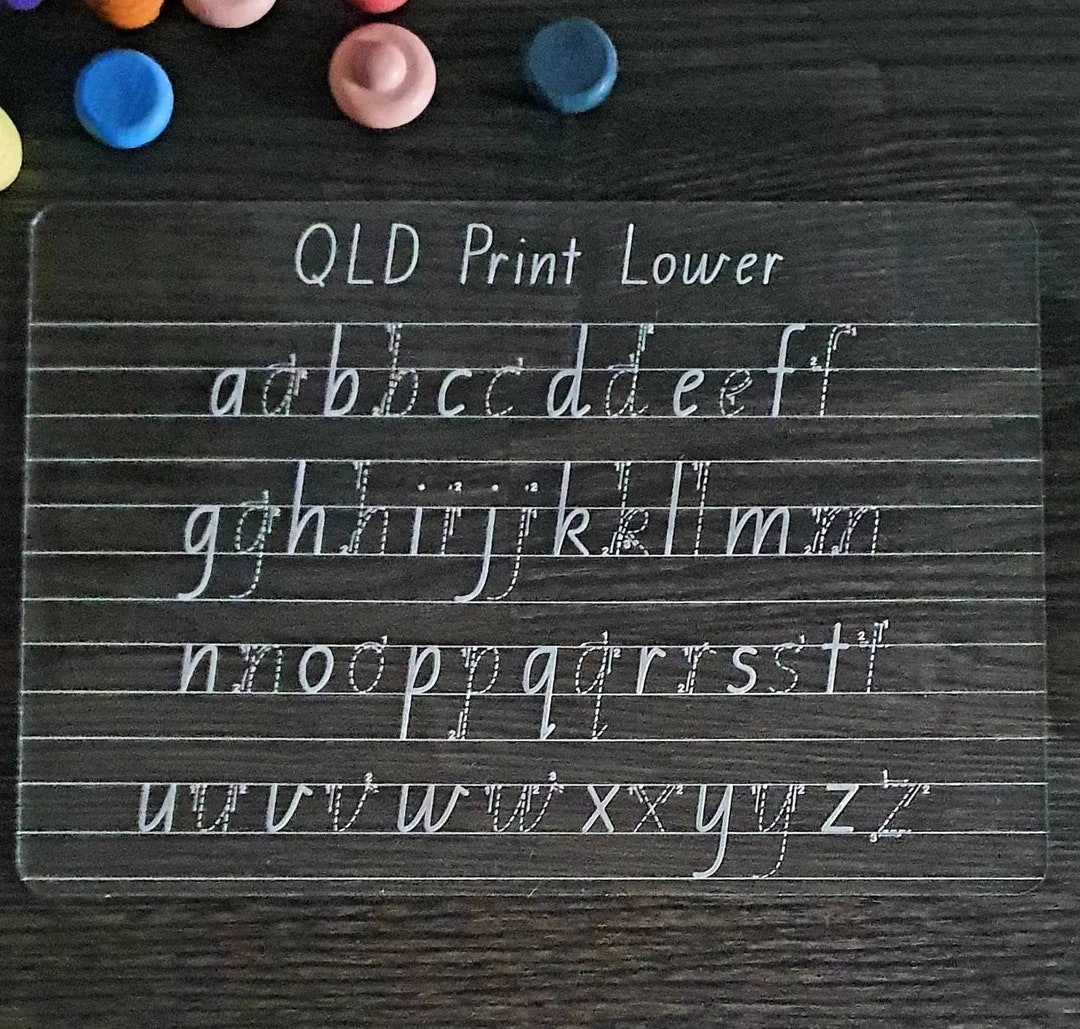 QLD Print Lower
aabbccddeeff
gghhiijjkkllmm
nnooppqqrrsstt
uuvvwwxxyyzz